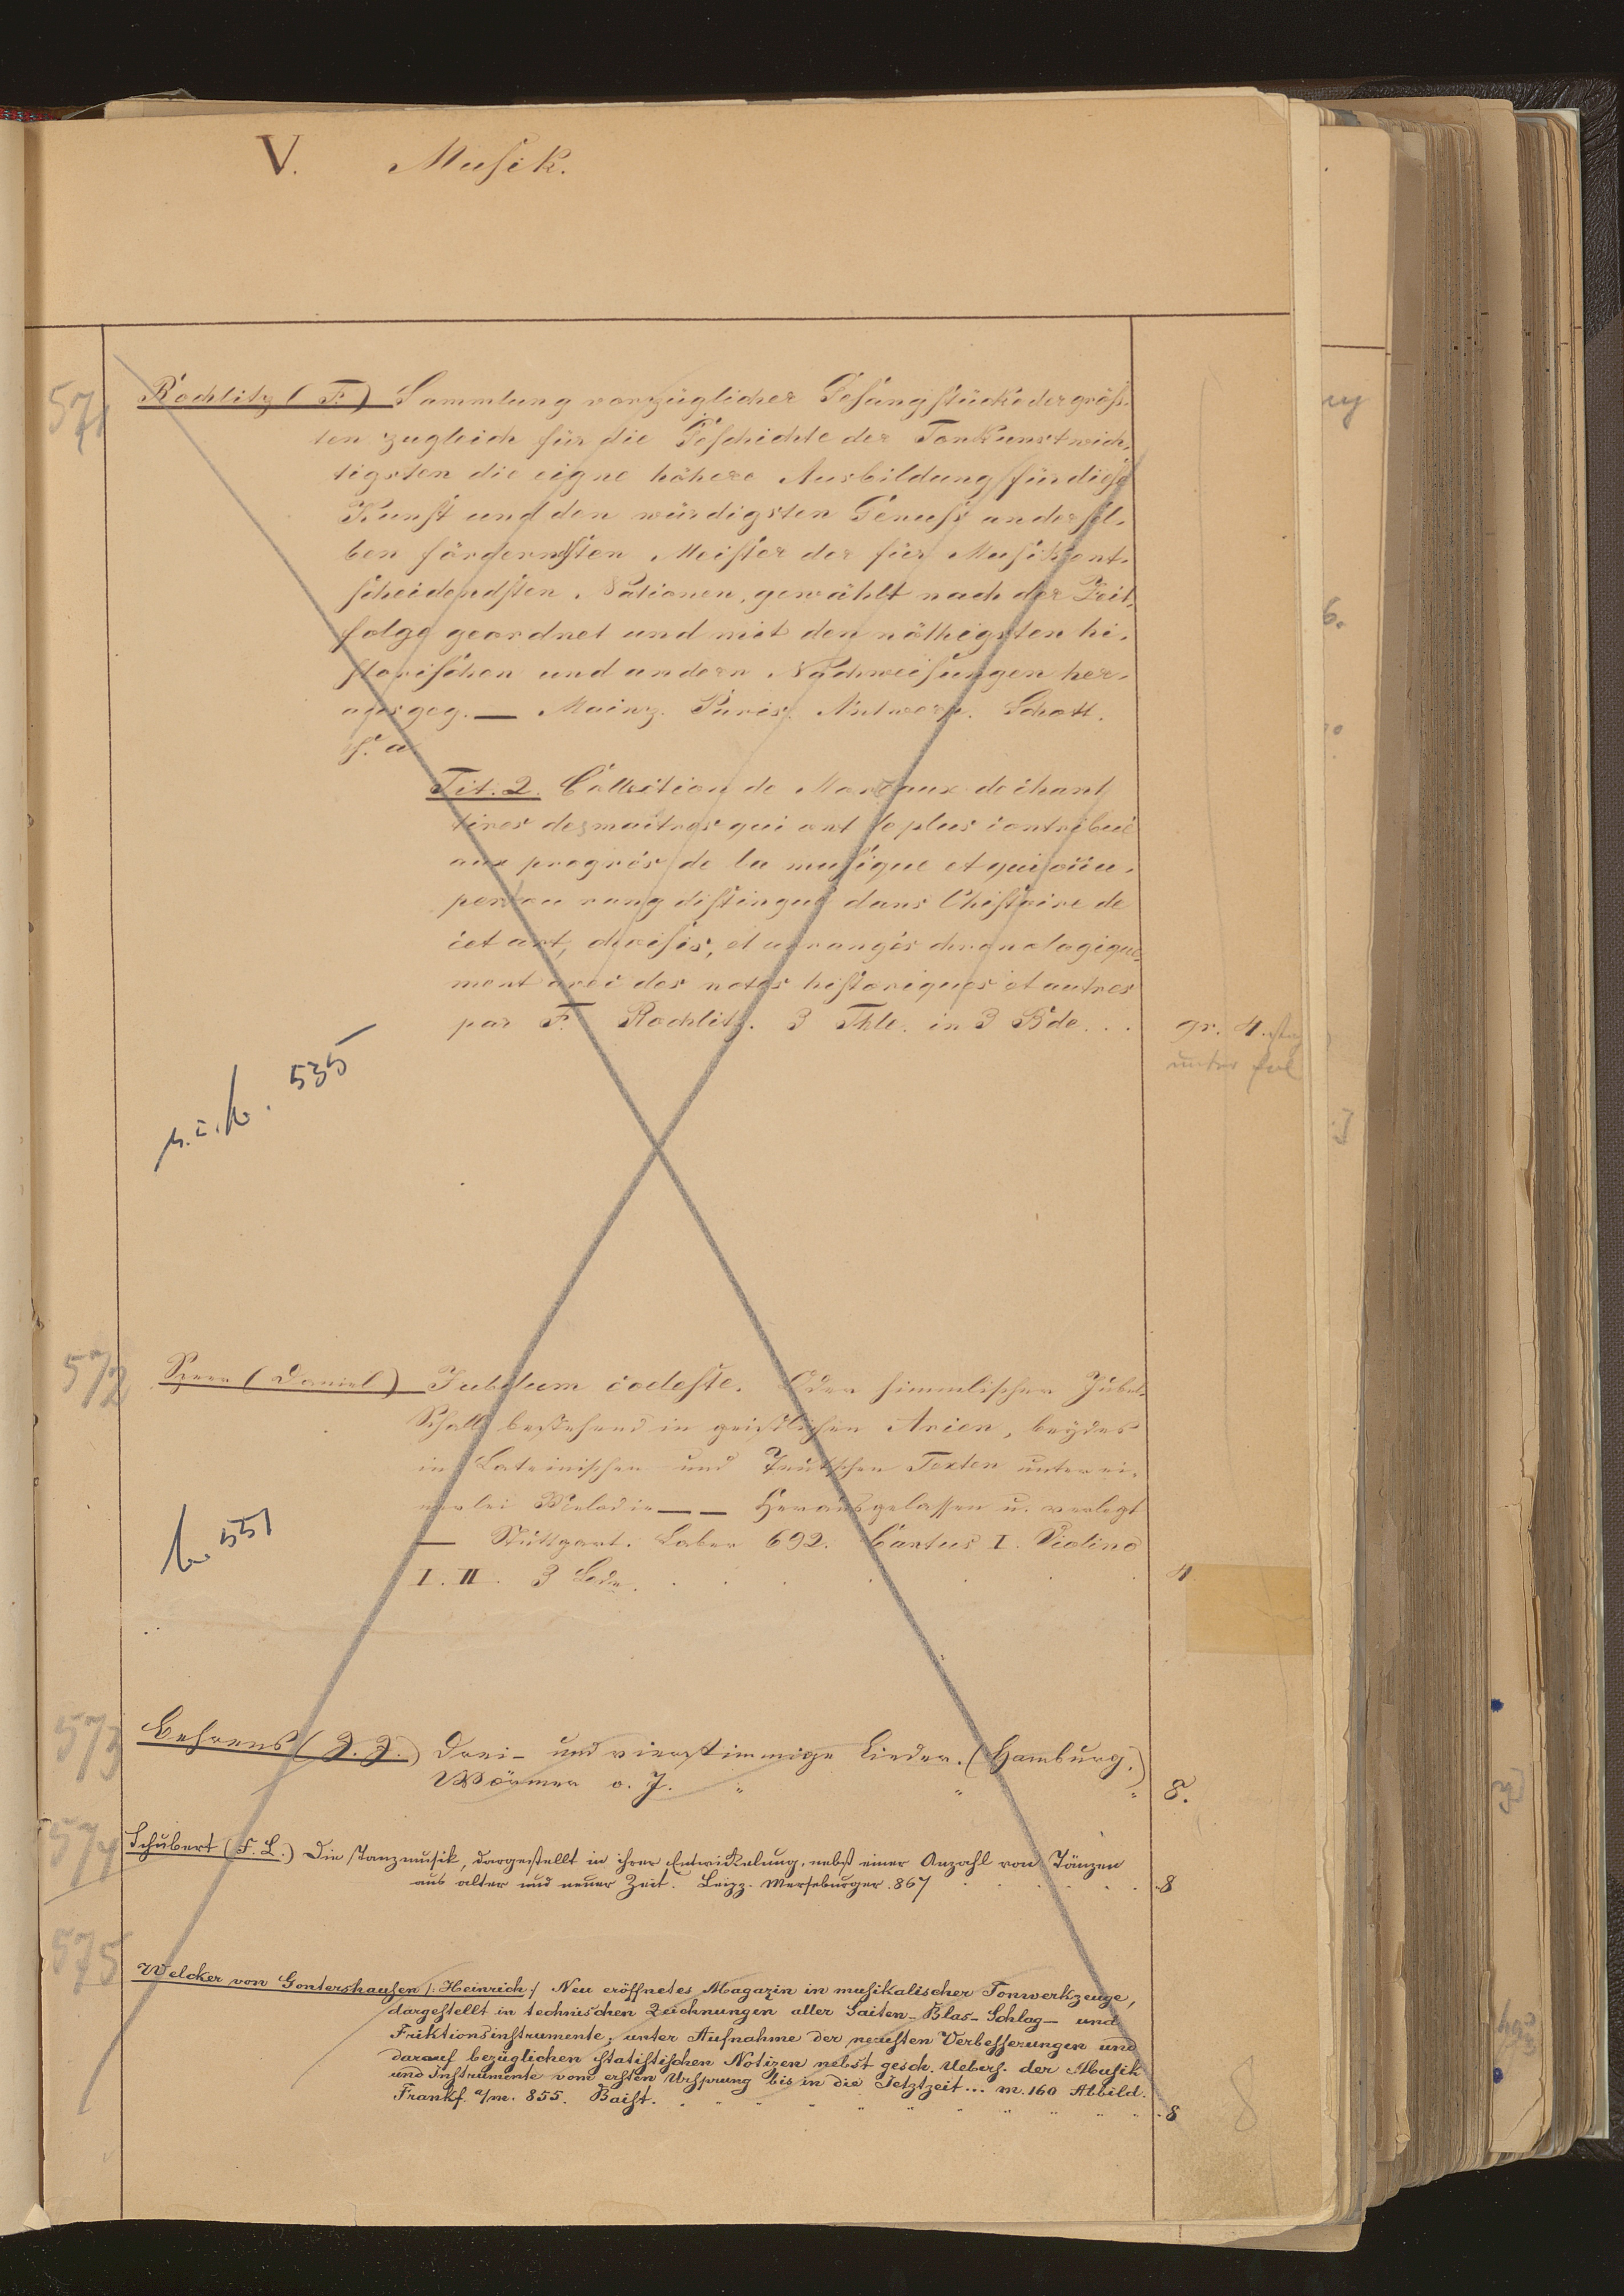 V. Musik.
571
Rochlitz (F.) Sammlung vorzüglicher Gesangstücke der gröss-
ten zugleich für die Geschichte der Tonkunst wich-
tigsten die eigne höhere Ausbildung für diese
Kunst und den würdigsten Genuss an dersel-
ben förderndsten Meister der für Musik ent-
scheidendsten Nationen, gewählt nach der Zeit-
folge geordnet und mit den nöthigsten hi-
storischen und andern Nachweisungen her-
ausgeg. — Mainz. Paris. Antwerp. Schott.
s. a.
Tit. 2. Collection de Morceaux de chant
tires des maitres qui ont le plus contribué
aux progrès de la musique et qui occu-
pent un rang distingué dans l'histoire de
cet art, choisis, et arrangés chronologique-
ment avec des notes historiques et autres
par F. Rochlitz. 3 Thle. in 3 Bde. . .
gr. 4.
unter fol
535
572
Speer (Daniel) Jubilum coeleste. Oder himmlischer Jubel-
Schall bestehend in geistlichen Arien, beydes
in Lateinischen und Teutschen Texten unter ei-
nerlei Melodie — — Herausgelassen u. verlegt
— Stuttgart. Laber 692. Cantus I. Violino
I. II. 3 Bde. . . . . . .
4
551
573
Behrens (J. J.) Drei- und vierstimmige Lieder. (Hamburg,)
Wörmer o. J. " " "
8.
574
Schubert (F. L.) Die Tanzmusik, dargestellt in ihrer Entwickelung, nebst einer Anzahl von Tänzen
aus alter und neuer Zeit. Leipz. Merseburger. 867 . . . . . .
8
575
Welcker von Gontershausen /: Heinrich :/ Neu eröffnetes Magazin in musikalischer Tonwerkzeuge,
dargestellt in technischen Zeichnungen aller Saiten- Blas- Schlag- und
Friktionsinstrumente, unter Aufnahme der neusten Verbesserungen und
darauf bezüglichen statistischen Notizen nebst gesch. Uebers. der Musik
und Instrumente vom ersten Ursprung bis in die Jetztzeit... m. 160 Abbild.
Frankf. a/m. 855. Baist. " " " " " " " " "
8
8